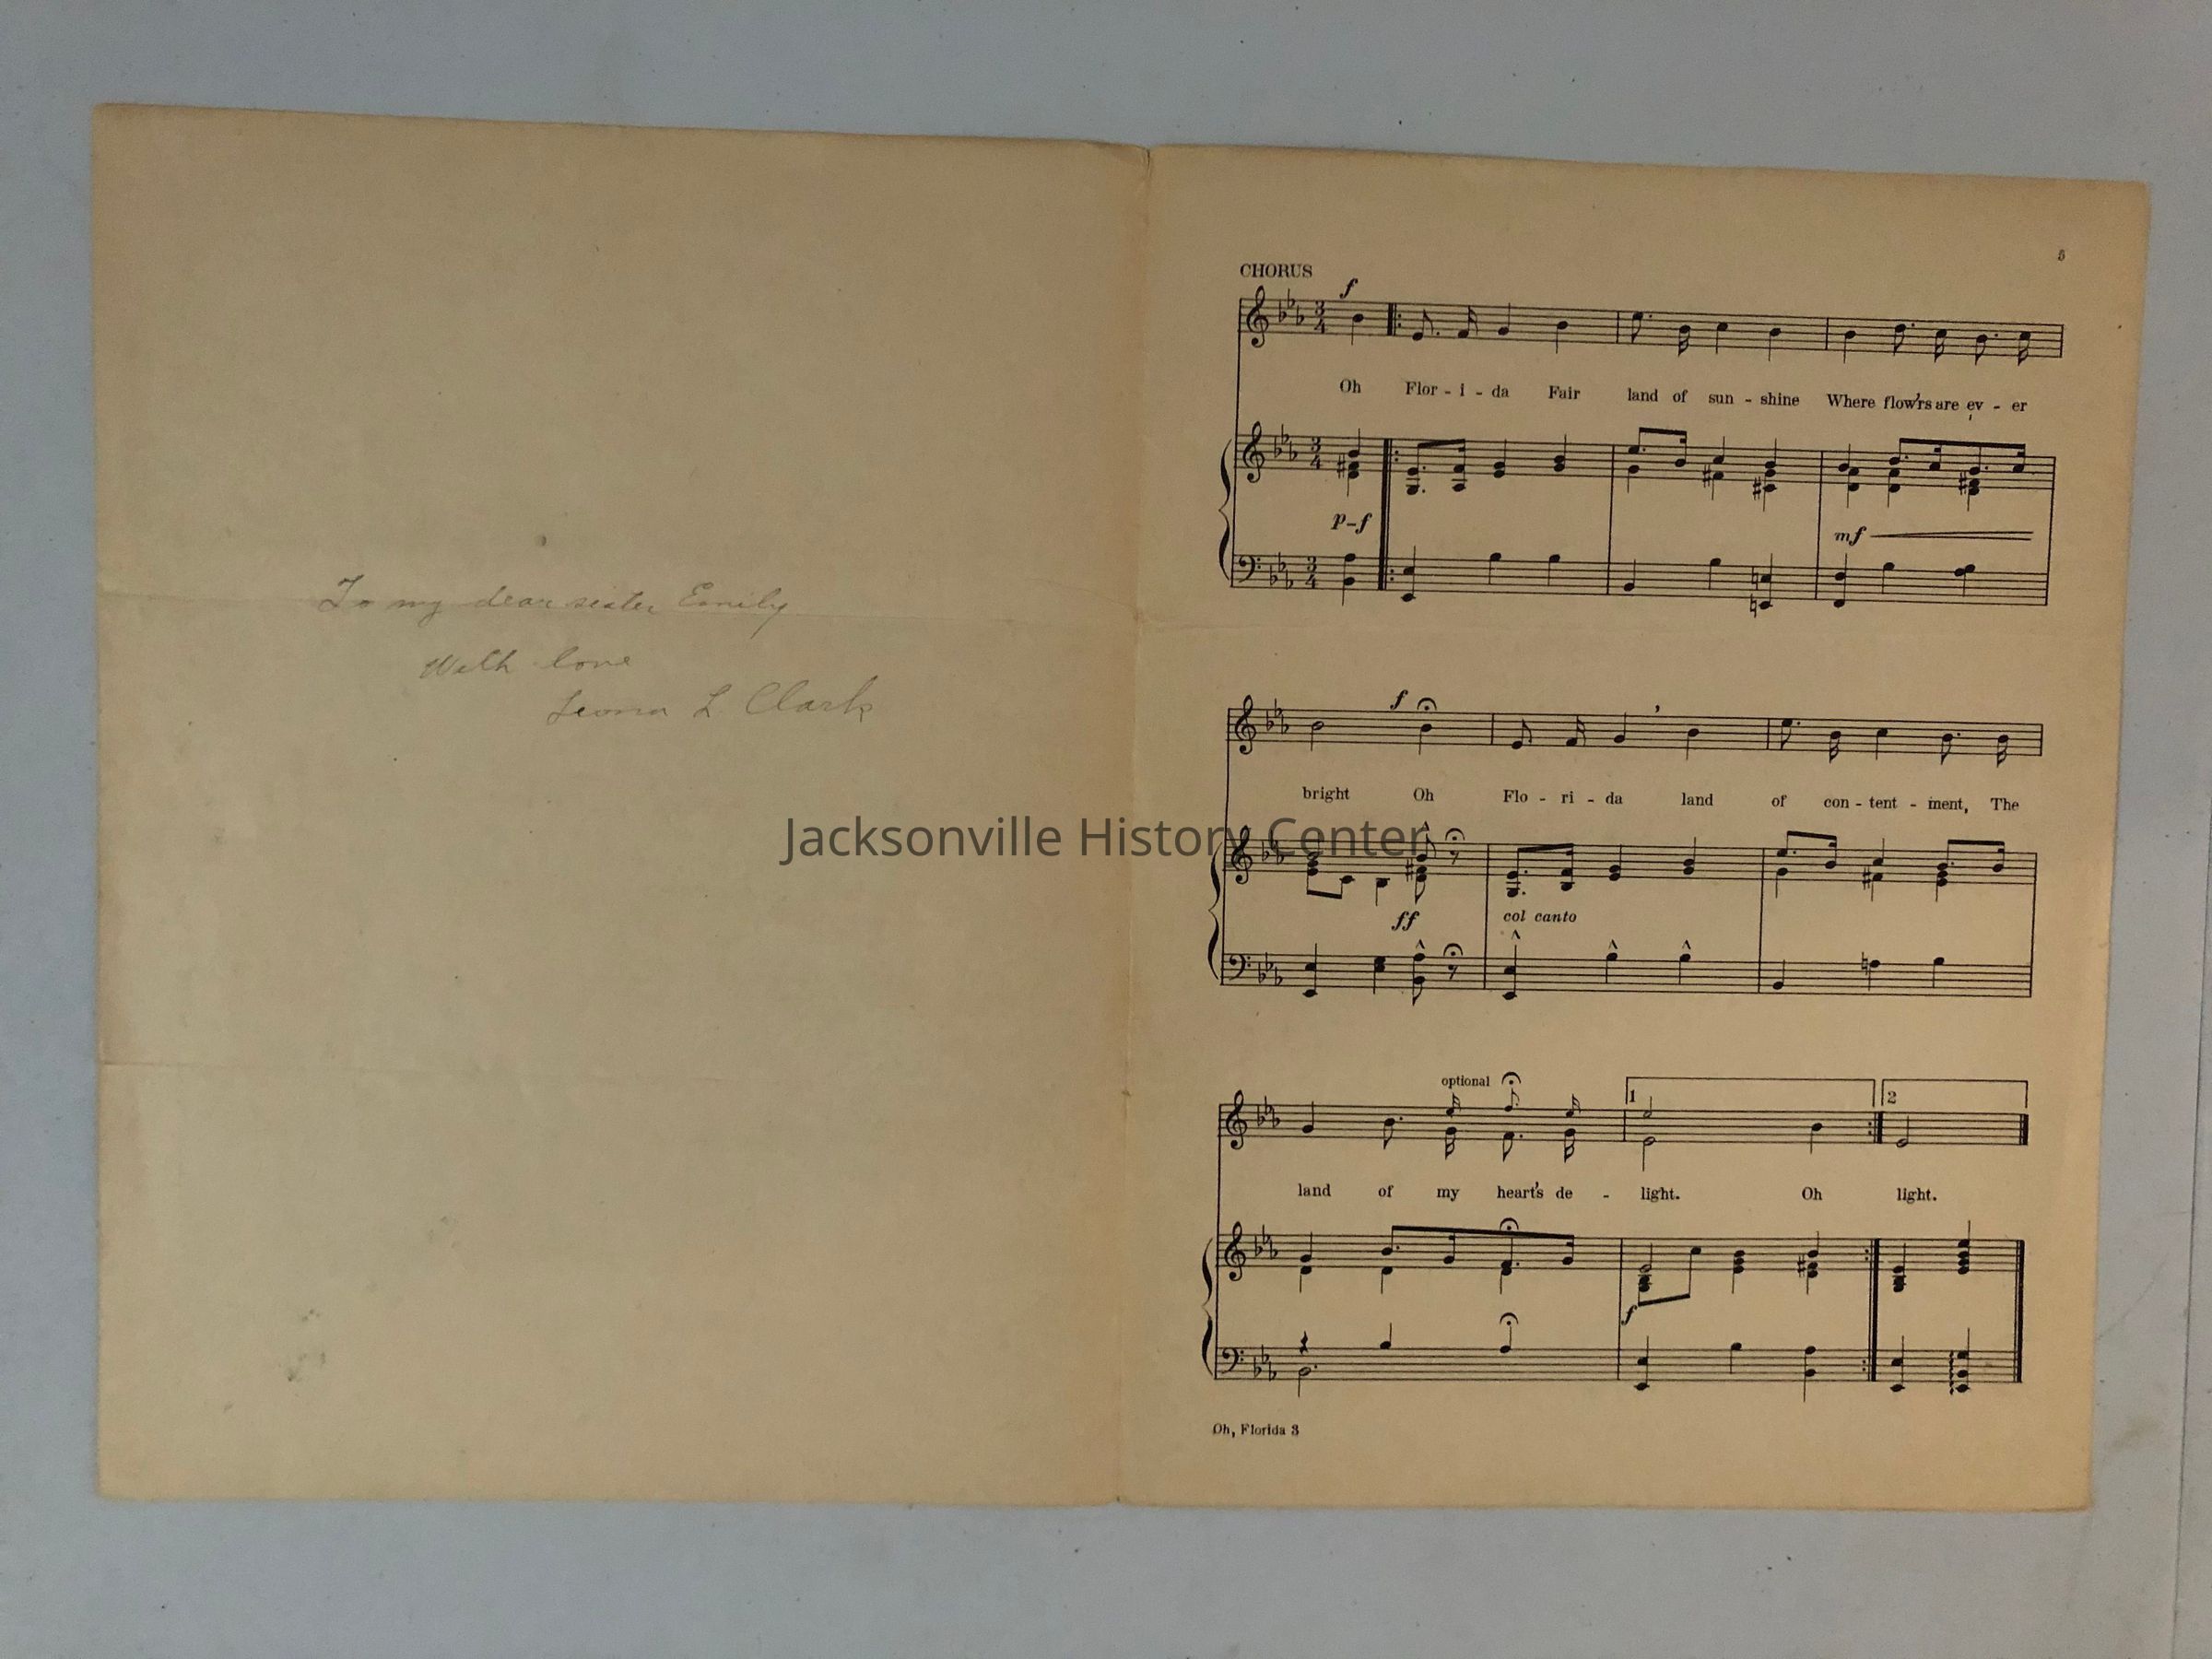 To my dear sister Emily
With love
Leona L. Clark
Jacksonville History Center
5
CHORUS
f
Oh Flor - i - da Fair land of sun - shine Where flow'rs are ev - er
p-f
mf
f
bright Oh Flo - ri - da land of con - tent - ment, The
ff
col canto
optional
1 2
land of my heart's de - light. Oh light.
f
Oh, Florida 3